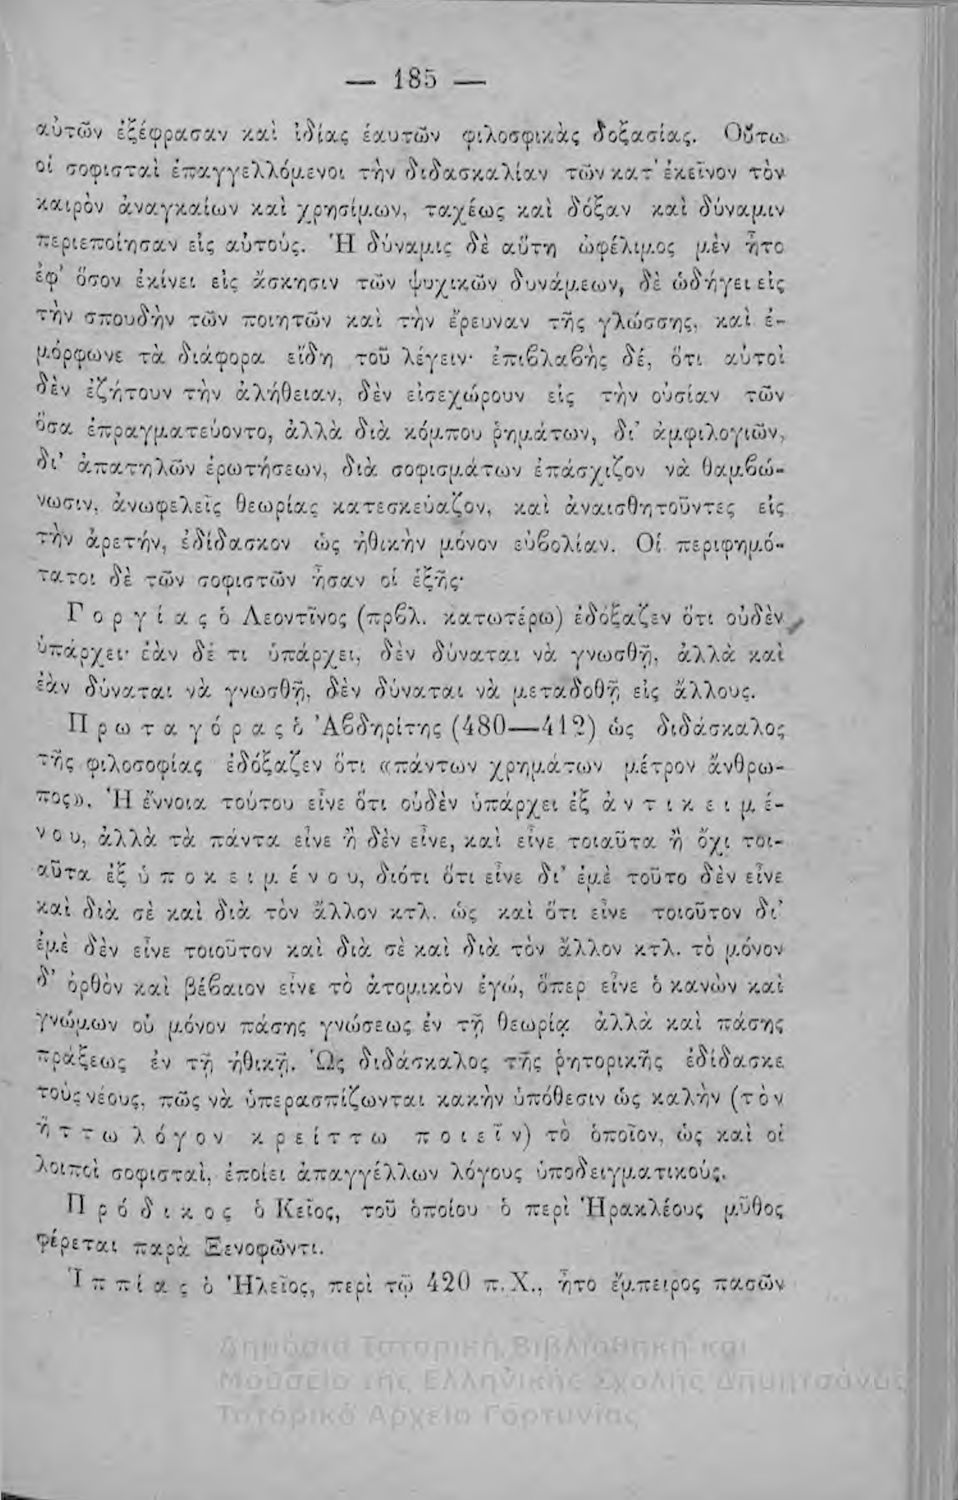 — 185 —
αὐτῶν ἐξέφρασαν καὶ ἰδίας ἑαυτῶν φιλοσφικὰς δοξασίας. Οὕτω
οἱ σοφισταὶ ἐπαγγελλόμενοι τὴν διδασκαλίαν τῶν κατ' ἐκεῖνον τὸν
καιρὸν ἀναγκαίων καὶ χρησίμων, ταχέως καὶ δόξαν καὶ δύναμιν
περιεποίησαν εἰς αὑτούς. Ἡ δύναμις δὲ αὕτη ὠφέλιμος μὲν ἦτο
ἐφ' ὅσον ἐκίνει εἰς ἄσκησιν τῶν ψυχικῶν δυνάμεων, δὲ ὡδήγει εἰς
τὴν σπουδὴν τῶν ποιητῶν καὶ τὴν ἔρευναν τῆς γλώσσης, καὶ ἐ-
μόρφωνε τὰ διάφορα εἴδη τοῦ λέγειν· ἐπιβλαβὴς δέ, ὅτι αὐτοὶ
δὲν ἐζήτουν τὴν ἀλήθειαν, δὲν εἰσεχώρουν εἰς τὴν οὐσίαν τῶν
ὅσα ἐπραγματεύοντο, ἀλλὰ διὰ κόμπου ῥημάτων, δι' ἀμφιλογιῶν,
δι' ἀπατηλῶν ἐρωτήσεων, διὰ σοφισμάτων ἐπάσχιζον νὰ θαμβώ-
νωσιν, ἀνωφελεῖς θεωρίας κατεσκεύαζον, καὶ ἀναισθητοῦντες εἰς
τὴν ἀρετήν, ἐδίδασκον ὡς ἠθικὴν μόνον εὐβολίαν. Οἱ περιφημό-
τατοι δὲ τῶν σοφιστῶν ἦσαν οἱ ἑξῆς·
Γοργίας ὁ Λεοντῖνος (πρβλ. κατωτέρω) ἐδόξαζεν ὅτι οὐδὲν
ὑπάρχει· ἐὰν δέ τι ὑπάρχει, δὲν δύναται νὰ γνωσθῇ, ἀλλὰ καὶ
ἐὰν δύναται νὰ γνωσθῇ, δὲν δύναται νὰ μεταδοθῇ εἰς ἄλλους.
Πρωταγόρας ὁ Ἀβδηρίτης (480—412) ὡς διδάσκαλος
τῆς φιλοσοφίας ἐδόξαζεν ὅτι «πάντων χρημάτων μέτρον ἄνθρω-
πος». Ἡ ἔννοια τούτου εἶνε ὅτι οὐδὲν ὑπάρχει ἐξ ἀντικειμέ-
νου, ἀλλὰ τὰ πάντα εἶνε ἢ δὲν εἶνε, καὶ εἶνε τοιαῦτα ἢ ὄχι τοι-
αῦτα ἐξ ὑποκειμένου, διότι ὅτι εἶνε δι' ἐμὲ τοῦτο δὲν εἶνε
καὶ διὰ σὲ καὶ διὰ τὸν ἄλλον κτλ. ὡς καὶ ὅτι εἶνε τοιοῦτον δι'
ἐμὲ δὲν εἶνε τοιοῦτον καὶ διὰ σὲ καὶ διὰ τὸν ἄλλον κτλ. τὸ μόνον
δ' ὀρθὸν καὶ βέβαιον εἶνε τὸ ἀτομικὸν ἐγώ, ὅπερ εἶνε ὁ κανὼν καὶ
γνώμων οὐ μόνον πάσης γνώσεως ἐν τῇ θεωρίᾳ ἀλλὰ καὶ πάσης
πράξεως ἐν τῇ ἠθικῇ. Ὡς διδάσκαλος τῆς ῥητορικῆς ἐδίδασκε
τοὺς νέους, πῶς νὰ ὑπερασπίζωνται κακὴν ὑπόθεσιν ὡς καλὴν (τὸν
ἥττω λόγον κρείττω ποιεῖν) τὸ ὁποῖον, ὡς καὶ οἱ
λοιποὶ σοφισταί, ἐποίει ἀπαγγέλλων λόγους ὑποδειγματικούς.
Πρόδικος ὁ Κεῖος, τοῦ ὁποίου ὁ περὶ Ἡρακλέους μῦθος
φέρεται παρὰ Ξενοφῶντι.
Ἱππίας ὁ Ἠλεῖος, περὶ τῷ 420 π.Χ., ἦτο ἔμπειρος πασῶν
Δημόσια Ιστορική Βιβλιοθήκη και
Μουσείο της Ελληνικής Σχολής Δημητσάνας
Ιστορικό Αρχείο Γορτυνίας